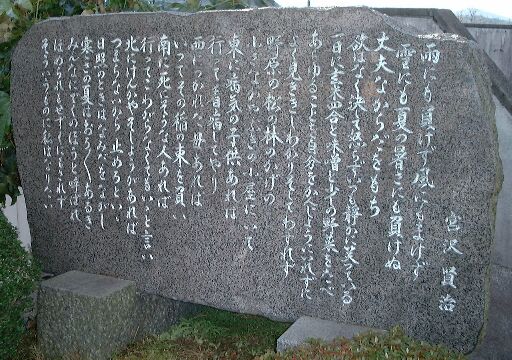 宮沢賢治
雨にも負けず風にもまけず
雪にも夏の暑さにも負けぬ
丈夫なからだをもち
欲はなく決して怒らずいつも静かに笑っている
一日に玄米四合と味噌と少しの野菜をたべ
あらゆることを自分をかんじょうにいれずに
よく見ききしわかりそしてわすれず
野原の松の林のかげの
小さなかやぶきの小屋にいて
東に病気の子供あれば
行って看病してやり
西につかれた母あれば
いってその稲の束を負い
南に死にそうな人あれば
行ってこわがらなくてもいいと言い
北にけんかやそしょうがあれば
つまらないから止めろといい
日照のときはなみだをながし
寒さの夏はおろおろあるき
みんなにでくのぼうと呼ばれ
ほめられもせずくにもされず
そういうものに私はなりたい